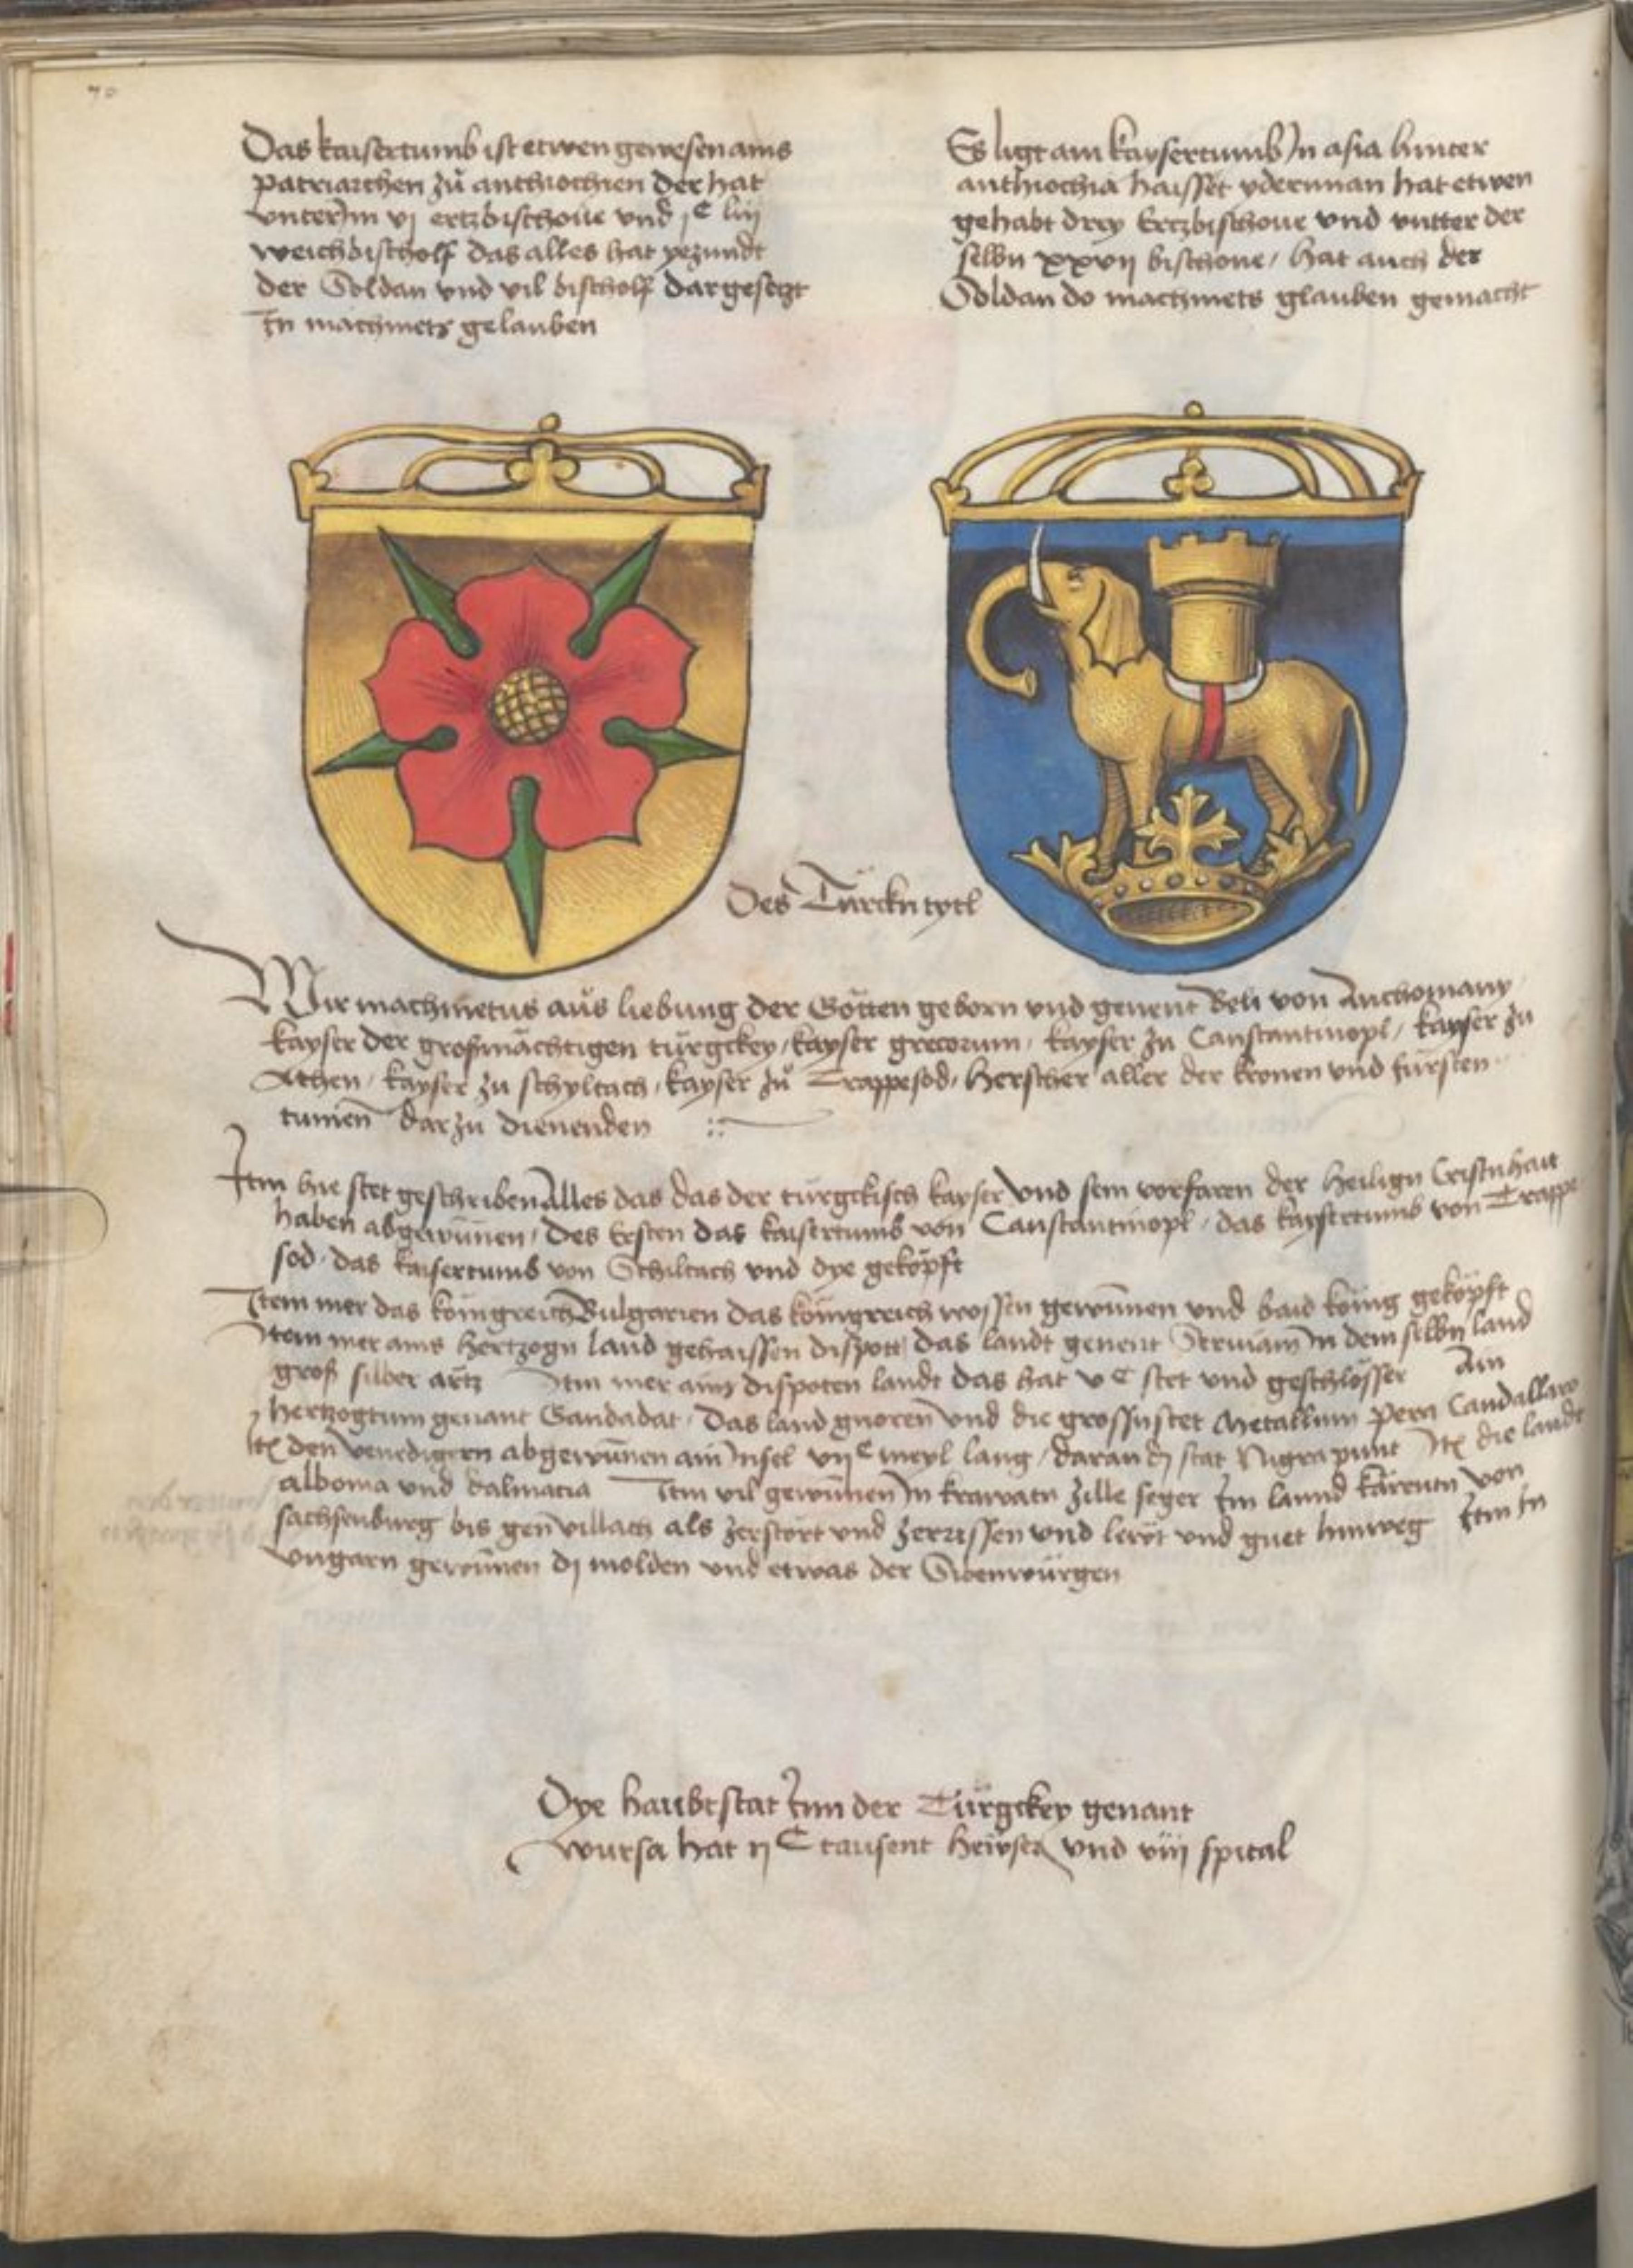 70
Das kaisertumb ist etwen gewesen ains
patriarchen zů anthiochien der hat
vnter Im vj ertzbischoue vnd jC liij
weichbischolf das alles hat yezundt
der Soldan vnd vil bischolf dargesetzt
In machmets gelauben
Es ligt ain kaysertumb In asia hinter
anthiochia haisset yderman hat etwen
gehabt drey Ertzbischoue vnd vntter der
selbn xxvij bischoue / hat auch der
Soldan do machmets glauben gemacht
Des Türckn tytl
Wir machmetus aus liebung der Götten geborn vnd genent Beli von Anchomany /
kayser der großmächtigen türgckey / kayser grecorum / kayser zu Constantinopl / kayser zu
Athen / kayser zu schyltach / kayser zů Trappesod / Herscher aller der kronen vnd fürsten
tumen dar zu dienenden
Itm hie stet geschriben Alles das das der türgckisch kayser vnd sein vorfaren der heilign Cristnhait
haben abgewunen / Des Ersten das kaisertumb von Constantinopl / das kaysertumb von Trappe
sod / das kaisertumb von Schiltach vnd dye geköpft
Item mer das königreich Bulgarien das königreich wossen gewunnen vnd baid könig geköpft
Item mer ains Hertzogn land gehaissen dispott das landt genent Seruiam In dem selbn land
groß silber ärtz Itm mer ainz dispoten landt das hat vC stet vnd geschlösser Ain
hertzogtum genant Gandadat / Das land gnoren vnd die grossn stet Metallum pera Candallaro
Itm den Venedigern abgewunnen ain Insel vijC meyl lang / daran dj stat Nigrapunt Itm die landt
albonia vnd dalmacia Item vil gewunnen In krawatn zille seger Im lannd kärentn von
sachsenburg bis gen villach als zerstört vnd zerrissen vnd lewt vnd guet hinweg Itm In
vngarn gewunnen dj molden vnd etwas der Sibenwürgen
Dye haubtstat Inn der Türgckey genant
wursa hat ijC tausent hewser vnd viij spital